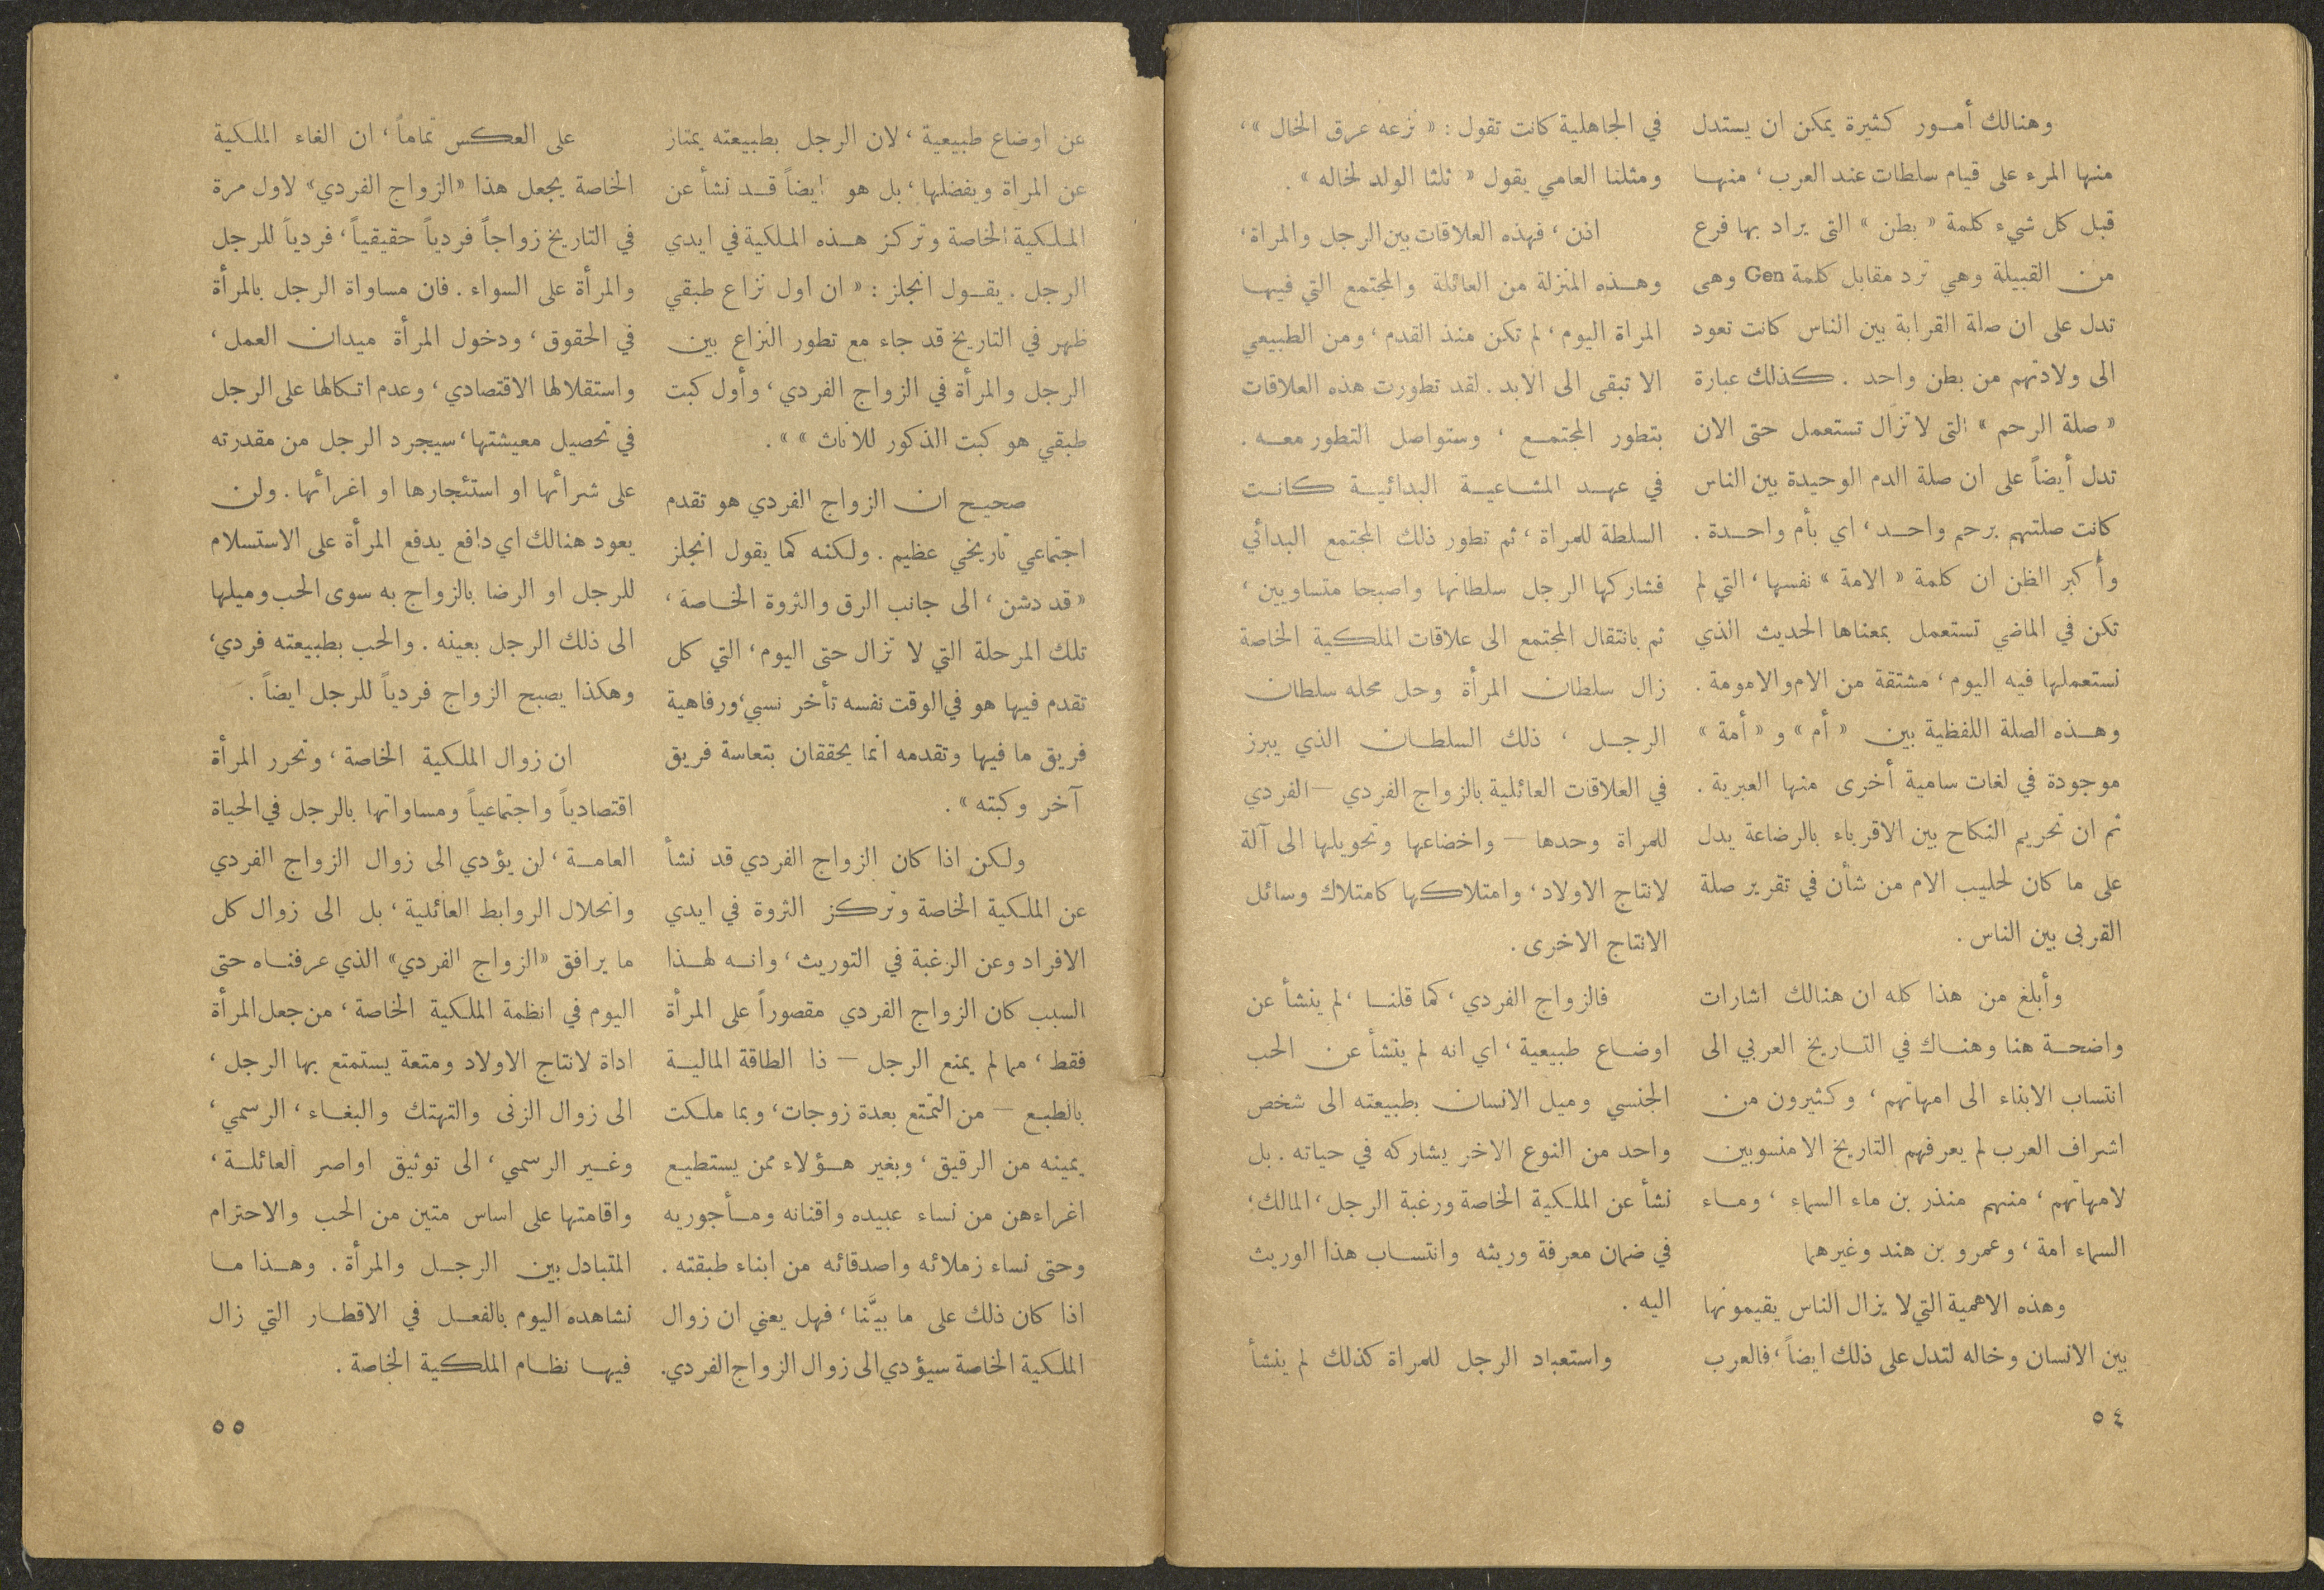 وهنالك أمور كثيرة يمكن ان يستدل
منها المرء على قيام سلطات عند العرب، منها
قبل كل شيء كلمة « بطن » التى يراد بها فرع
من القبيلة وهي ترد مقابل كلمة Gen وهى
تدل على ان صلة القرابة بين الناس كانت تعود
الى ولادتهم من بطن واحد . كذلك عبارة
« صلة الرحم » التى لا تزال تستعمل حتى الان
تدل أيضاً على ان صلة الدم الوحيدة بين الناس
كانت صلتهم برحم واحد، اي بأم واحدة .
وأكبر الظن ان كلمة « الامة » نفسها، التي لم
تكن في الماضي تستعمل بمعناها الحديث الذي
نستعملها فيه اليوم، مشتقة من الام والامومة .
وهذه الصلة اللفظية بين « أم » و « أمة »
موجودة في لغات سامية أخرى منها العبرية .
ثم ان تحريم النكاح بين الاقرباء بالرضاعة يدل
على ما كان لحليب الام من شأن في تقرير صلة
القربى بين الناس .
وأبلغ من هذا كله ان هنالك اشارات
واضحة هنا وهناك في التاريخ العربي الى
انتساب الابناء الى امهاتهم، وكثيرون من
اشراف العرب لم يعرفهم التاريخ الا منسوبين
لامهاتهم، منهم منذر بن ماء السماء ، وماء
السماء امة ، وعمرو بن هند وغيرهما
وهذه الاهمية التي لا يزال الناس يقيمونها
بين الانسان وخاله لتدل على ذلك ايضاً، فالعرب
في الجاهلية كانت تقول : « نزعه عرق الخال »،
ومثلنا العامي يقول « ثلثا الولد لخاله » .
اذن ، فهذه العلاقات بين الرجل والمراة،
وهذه المنزلة من العائلة والمجتمع التي فيها
المراة اليوم، لم تكن منذ القدم ، ومن الطبيعي
الا تبقى الى الابد . لقد تطورت هذه العلاقات
بتطور المجتمع ، وستواصل التطور معه .
في عهد المشاعية البدائية كانت
السلطة للمراة ، ثم تطور ذلك المجتمع البدائي
فشاركها الرجل سلطانها واصبحا متساويين ،
ثم بانتقال المجتمع الى علاقات الملكية الخاصة
زال سلطان المرأة وحل محله سلطان
الرجل ، ذلك السلطان الذي يبرز
في العلاقات العائلية بالزواج الفردي – الفردي
للمراة وحدها – واخضاعها وتحويلها الى آلة
لانتاج الاولاد، وامتلاكها كامتلاك وسائل
الانتاج الاخرى .
فالزواج الفردي، كما قلنا ، لم ينشأ عن
اوضاع طبيعية ، اي انه لم ينشأ عن الحب
الجنسي وميل الانسان بطبيعته الى شخص
واحد من النوع الاخر يشاركه في حياته . بل
نشأ عن الملكية الخاصة ورغبة الرجل، المالك،
في ضمان معرفة وريثه وانتساب هذا الوريث
اليه .
واستعباد الرجل للمراة كذلك لم ينشأ
٥٤
عن اوضاع طبيعية ، لان الرجل بطبيعته يمتاز
عن المراة ويفضلها، بل هو ايضاً قد نشأ عن
الملكية الخاصة وتركز هذه الملكية في ايدي
الرجل . يقول انجلز : « ان اول نزاع طبقي
ظهر في التاريخ قد جاء مع تطور النزاع بين
الرجل والمرأة في الزواج الفردي، وأول كبت
طبقي هو كبت الذكور للاناث » » .
صحيح ان الزواج الفردي هو تقدم
اجتماعي تاريخي عظيم . ولكنه كما يقول انجلز
« قد دشن ، الى جانب الرق والثروة الخاصة ،
تلك المرحلة التي لا تزال حتى اليوم، التي كل
تقدم فيها هو في الوقت نفسه تأخر نسبي، ورفاهية
فريق ما فيها وتقدمه انما يحققان بتعاسة فريق
آخر وكبته » .
ولكن اذا كان الزواج الفردي قد نشأ
عن الملكية الخاصة وتركز الثروة في ايدي
الافراد وعن الرغبة في التوريث ، وانه لهذا
السبب كان الزواج الفردي مقصوراً على المرأة
فقط ، مما لم يمنع الرجل – ذا الطاقة المالية
بالطبع – من التمتع بعدة زوجات، وبما ملكت
يمينه من الرقيق ، وبغير هؤلاء ممن يستطيع
اغراءهن من نساء عبيده واقنانه ومأجوريه
وحتى نساء زملائه واصدقائه من ابناء طبقته .
اذا كان ذلك على ما بيَّنا ، فهل يعني ان زوال
الملكية الخاصة سيؤدي الى زوال الزواج الفردي.
على العكس تماماً ، ان الغاء الملكية
الخاصة يجعل هذا «الزواج الفردي» لاول مرة
في التاريخ زواجاً فردياً حقيقياً، فردياً للرجل
والمرأة على السواء . فان مساواة الرجل بالمرأة
في الحقوق ، ودخول المرأة ميدان العمل ،
واستقلالها الاقتصادي ، وعدم اتكالها على الرجل
في تحصيل معيشتها، سيجرد الرجل من مقدرته
على شرائها او استئجارها او اغرائها . ولن
يعود هنالك اي دافع يدفع المرأة على الاستسلام
للرجل او الرضا بالزواج به سوى الحب وميلها
الى ذلك الرجل بعينه . والحب بطبيعته فردي،
وهكذا يصبح الزواج فردياً للرجل ايضاً .
ان زوال الملكية الخاصة ، وتحرر المرأة
اقتصادياً واجتماعياً ومساواتها بالرجل في الحياة
العامة ، لن يؤدي الى زوال الزواج الفردي
وانحلال الروابط العائلية ، بل الى زوال كل
ما يرافق «الزواج الفردي» الذي عرفناه حتى
اليوم في انظمة الملكية الخاصة ، من جعل المرأة
اداة لانتاج الاولاد ومتعة يستمتع بها الرجل ،
الى زوال الزنى والتهتك والبغاء، الرسمي ،
وغير الرسمي ، الى توثيق اواصر العائلة ،
واقامتها على اساس متين من الحب والاحترام
المتبادل بين الرجل والمرأة . وهذا ما
نشاهده اليوم بالفعل في الاقطار التي زال
فيها نظام الملكية الخاصة .
٥٥